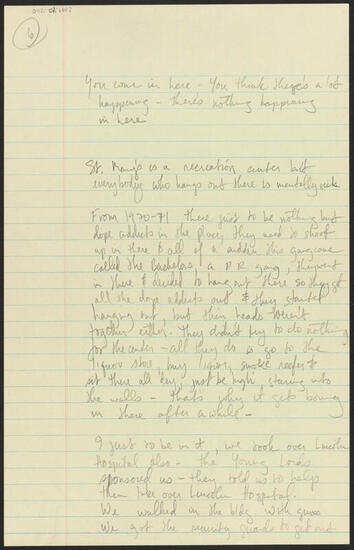 6
You come in here - You think there's a lot
happening - there's nothing happening
in here
St. Mary's is a recreation center but
everybody who hangs out there is mentally sick
From 1970-71 there just to be nothing but
dope addicts in the place, they used to shoot
up in there & all of a sudden this gang came
called the Bachelors, a P R gang, they went
in there & decided to hang out there so they got
all the dope addicts out & they started
hanging out, but their heads weren't
together either. They didn't try to do nothing
for the center - all they do is go to the
liquor store, buy liquor, smoke reefer &
sit there all day, just be high, staring into
the walls - that's why it gets boring
in there after a while -
I just to be in it, we took over Lincoln
Hospital also - the Young Lords
sponsored us - they told us to help
them take over Lincoln Hospital.
We walked in the bldg with guns
We got the security guards to get out